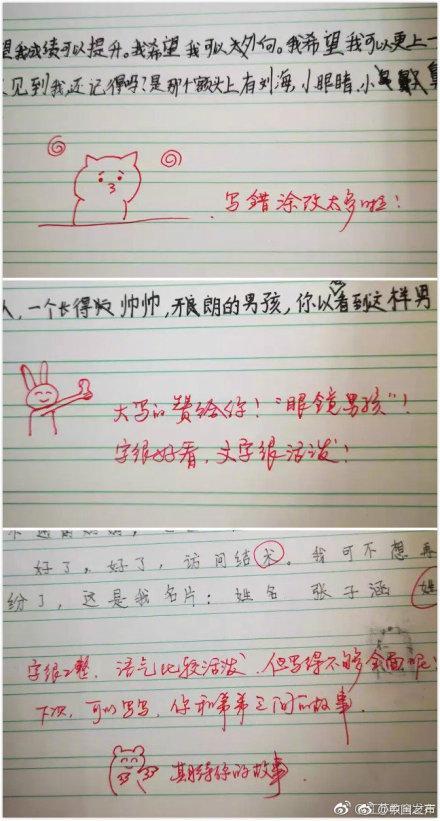 望我成绩可以提升。我希望我可以大外向。我希望我可以更上一
见到我,还记得吗?是那个额头上有刘海,小眼睛,小
写错涂改太多啦!
人,一个长得 帅帅,开朗的男孩,你以 看到这样男
大写的赞给你!“眼镜男孩”!
字很好看,文字很活泼!
好了,好了,访问结术。我可不想再
纷了,这是我名片:姓名 张子涵 姓
字很工整,语气比较活泼,但写得不够全面呢!
下次,可以写写,你和弟弟之间的故事.
期待你的故事.
@江苏教育发布